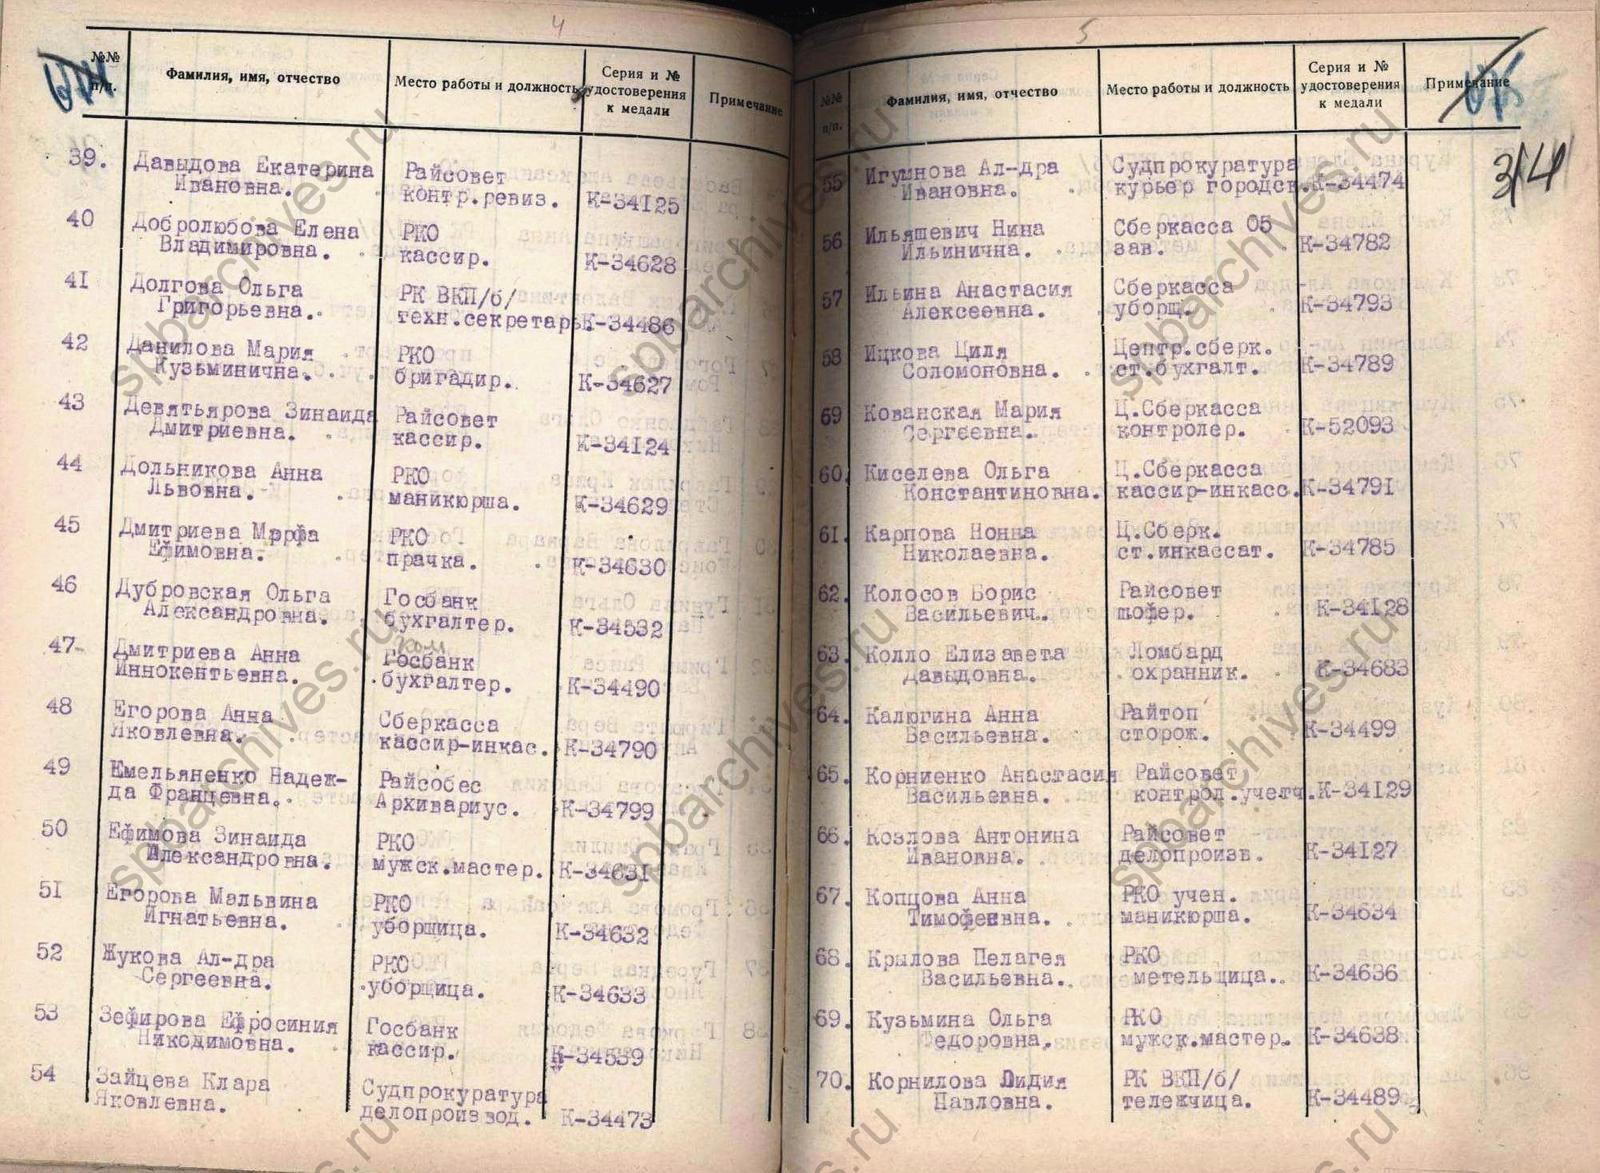 4
№№
п/п.
Фамилия, имя, отчество
Место работы и должность
Серия и №
удостоверения
к медали
Примечание
39. Давыдова Екатерина Райсовет
Ивановна. контр.ревиз. К-34125
40 Добролюбова Елена РКО
Владимировна. кассир. К-34628
41 Долгова Ольга РК ВКП/б/
Григорьевна. техн.секретарь. К-34486
42 Данилова Мария РКО
Кузьминична. бригадир. К-34627
43 Девятьярова Зинаида Райсовет
Дмитриевна. кассир. К-34124
44 Дольникова Анна РКО
Львовна. маникюрша. К-34629
45 Дмитриева Марфа РКО
Ефимовна. прачка. К-34630
46 Дубровская Ольга Госбанк
Александровна. бухгалтер. К-34532
47 Дмитриева Анна Госбанк
Иннокентьевна. бухгалтер. К-34490
48 Егорова Анна Сберкасса
Яковлевна. кассир-инкас. К-34790
49 Емельяненко Надеж- Райсобес
да Францевна. Архивариус. К-34799
50 Ефимова Зинаида РКО
Александровна. мужск.мастер. К-34631
51 Егорова Мальвина РКО
Игнатьевна. уборщица. К-34632
52 Жукова Ал-дра РКО
Сергеевна. уборщица. К-34633
53 Зефирова Ефросиния Госбанк
Никодимовна. кассир. К-34539
54 Зайцева Клара Судпрокуратура
Яковлевна. делопроизвод. К-34473
5
№№
п/п.
Фамилия, имя, отчество
Место работы и должность
Серия и №
удостоверения
к медали
Примечание
3/4
55 Игумнова Ал-дра Судпрокуратура
Ивановна. курьер городск. К-34474
56 Ильяшевич Нина Сберкасса 05
Ильинична. зав. К-34782
57 Ильина Анастасия Сберкасса
Алексеевна. уборщ. К-34793
58 Ицкова Циля Центр.сберк.
Соломоновна. ст.бухгалт. К-34789
69 Кованская Мария Ц.Сберкасса
Сергеевна. контролер. К-52093
60. Киселева Ольга Ц.Сберкасса
Константиновна. кассир-инкасс. К-34791
61. Карпова Нонна Ц.Сберк.
Николаевна. ст.инкассат. К-34785
62. Колосов Борис Райсовет
Васильевич. шофер. К-34128
63. Колло Елизавета Ломбард
Давыдовна. охранник. К-34683
64. Калюгина Анна Райтоп
Васильевна. сторож. К-34499
65. Корниенко Анастасия Райсовет
Васильевна. контрол.учетч. К-34129
66. Козлова Антонина Райсовет
Ивановна. делопроизв. К-34127
67. Копцова Анна РКО учен.
Тимофеевна. маникюрша. К-34634
68. Крылова Пелагея РКО
Васильевна. метельщица. К-34636
69. Кузьмина Ольга РКО
Федоровна, мужск.мастер. К-34638
70. Корнилова Лидия РК ВКП/б/
Павловна. тележчица. К-34489
spbarchives.ru
spbarchives.ru
spbarchives.ru
spbarchives.ru
spbarchives.ru
spbarchives.ru